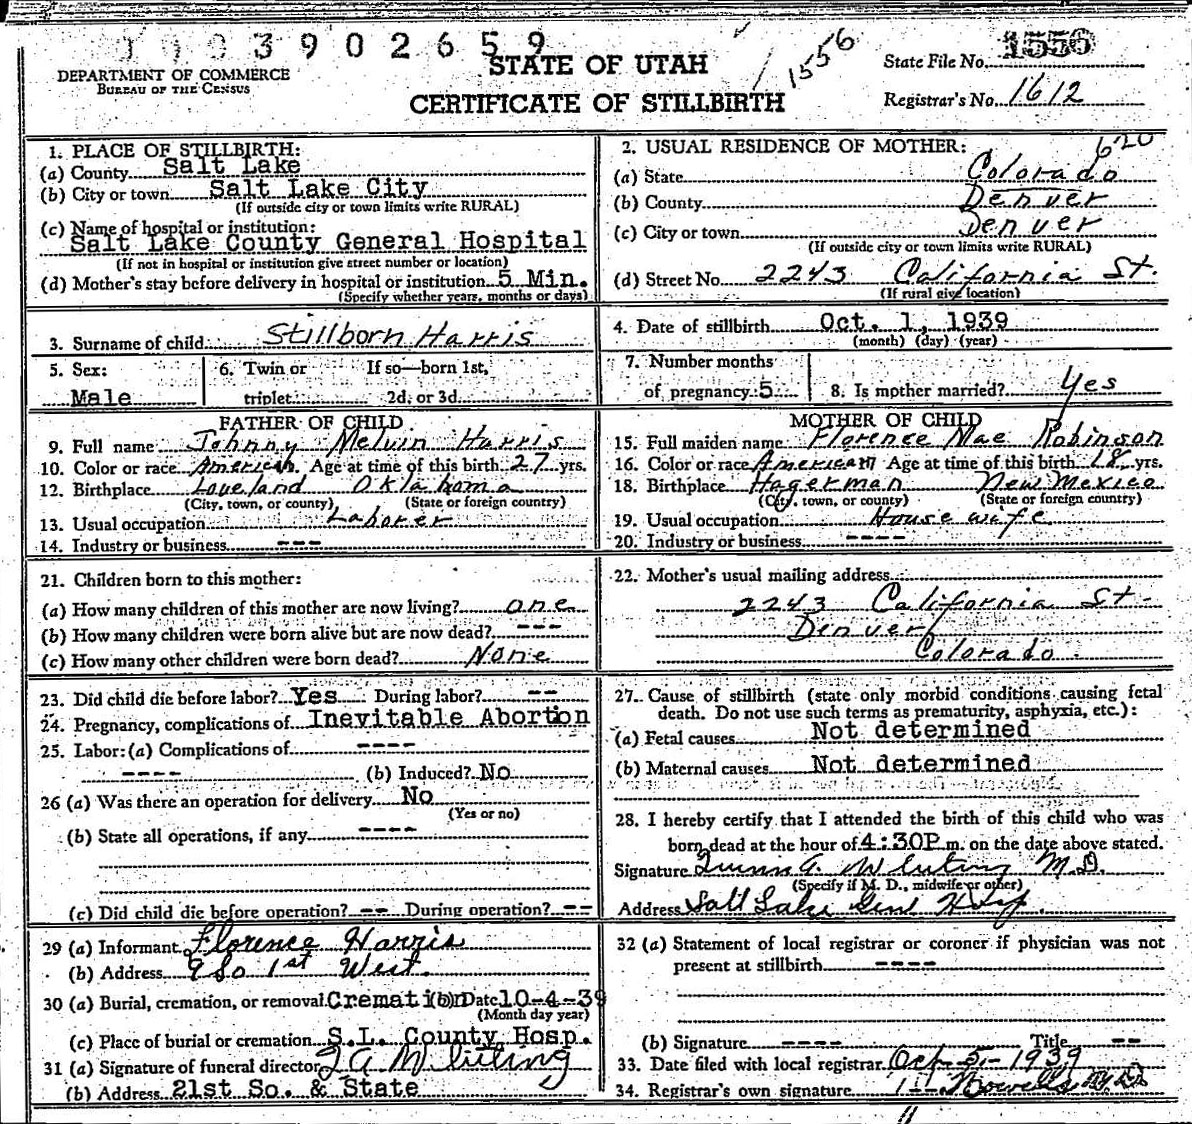 1003902659
1556
DEPARTMENT OF COMMERCE
BUREAU OF THE CENSUS
STATE OF UTAH
CERTIFICATE OF STILLBIRTH
State File No. 1556
Registrar's No. 1612
1. PLACE OF STILLBIRTH:
(a) County Salt Lake
(b) City or town Salt Lake City
(If outside city or town limits write RURAL)
(c) Name of hospital or institution:
Salt Lake County General Hospital
(If not in hospital or institution give street number or location)
(d) Mother's stay before delivery in hospital or institution 5 Min.
(Specify whether years, months or days)
2. USUAL RESIDENCE OF MOTHER: 620
(a) State Colorado
(b) County Denver
(c) City or town Denver
(If outside city or town limits write RURAL)
(d) Street No. 2243 California St.
(If rural give location)
3. Surname of child: Stillborn Harris
4. Date of stillbirth Oct. 1, 1939
(month) (day) (year)
5. Sex:
Male
6. Twin or If so—born 1st,
triplet 2d, or 3d
7. Number months
of pregnancy 5
8. Is mother married? Yes
FATHER OF CHILD
9. Full name Johnny Melvin Harris
10. Color or race American Age at time of this birth 27 yrs.
12. Birthplace Loveland Oklahoma
(City, town, or county) (State or foreign country)
13. Usual occupation Laborer
14. Industry or business ---
MOTHER OF CHILD
15. Full maiden name Florence Mae Robinson
16. Color or race American Age at time of this birth 18 yrs.
18. Birthplace Hagerman New Mexico
(City, town, or county) (State or foreign country)
19. Usual occupation House wife
20. Industry or business ----
21. Children born to this mother:
(a) How many children of this mother are now living? one
(b) How many children were born alive but are now dead? ---
(c) How many other children were born dead? None
22. Mother's usual mailing address
2243 California St.
Denver
Colorado
23. Did child die before labor? Yes During labor? --
24. Pregnancy, complications of Inevitable Abortion
25. Labor: (a) Complications of ----
---- (b) Induced? No
26 (a) Was there an operation for delivery No
(Yes or no)
(b) State all operations, if any ----
(c) Did child die before operation? -- During operation? --
27. Cause of stillbirth (state only morbid conditions causing fetal
death. Do not use such terms as prematurity, asphyxia, etc.):
(a) Fetal causes Not determined
(b) Maternal causes Not determined
28. I hereby certify that I attended the birth of this child who was
born dead at the hour of 4:30P m. on the date above stated.
Signature Quinn A. Whiting M.D.
(Specify if M. D., midwife or other)
Address Salt Lake Gen Hosp.
29 (a) Informant Florence Harris
(b) Address 9 So 1st West.
30 (a) Burial, cremation, or removal Cremation (b) Date 10-4-39
(Month day year)
(c) Place of burial or cremation S.L. County Hosp.
31 (a) Signature of funeral director Q A Whiting
(b) Address 21st So. & State
32 (a) Statement of local registrar or coroner if physician was not
present at stillbirth ----
(b) Signature ---- Title --
33. Date filed with local registrar Oct-5-1939
34. Registrar's own signature